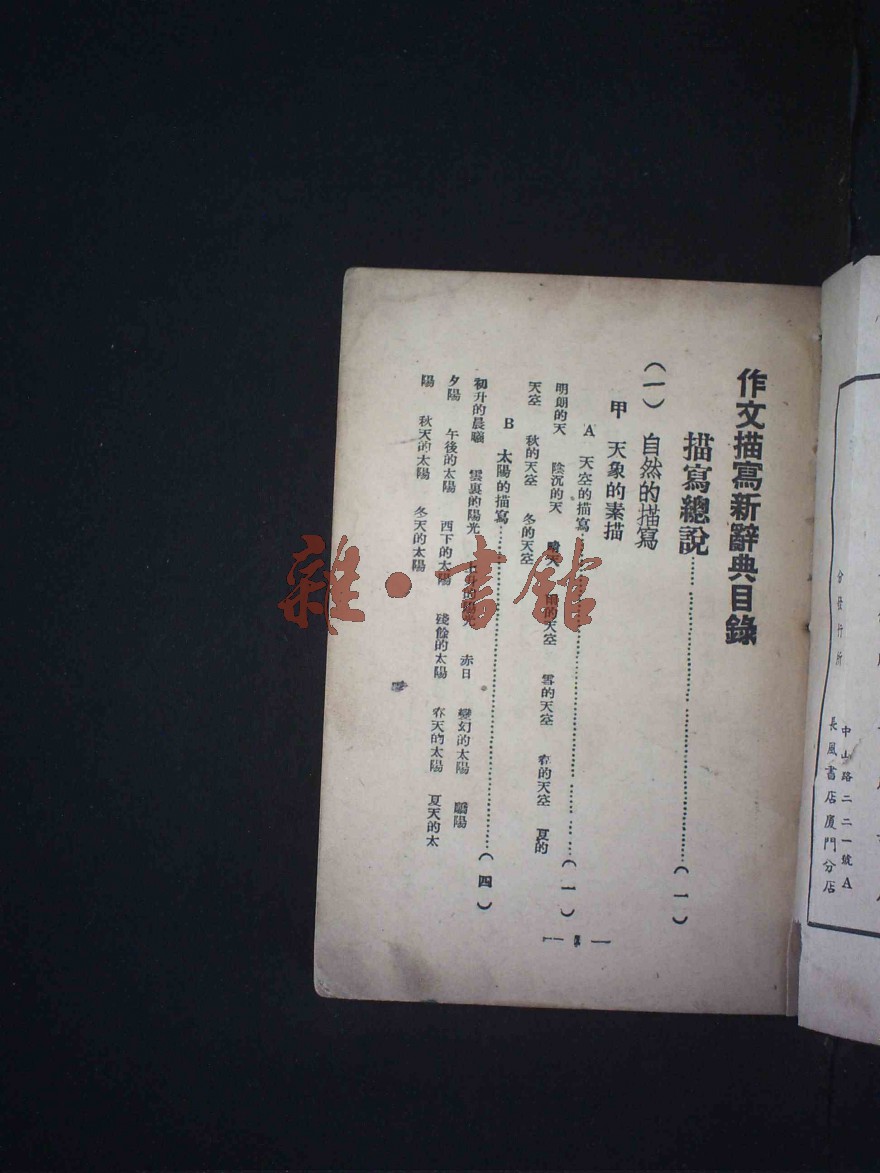 作文描寫新辭典目錄
描寫總說……(一)
(一) 自然的描寫
甲 天象的素描
A 天空的描寫……(一)
明朗的天 陰沉的天 晴天 的天空 雪的天空 春的天空 夏的
天空 秋的天空 冬的天空
B 太陽的描寫……(四)
初升的晨曦 雲裏的陽光 的陽光 赤日 變幻的太陽 驕陽
夕陽 午後的太陽 西下的太陽 殘餘的太陽 春天的太陽 夏天的太
陽 秋天的太陽 冬天的太陽
雜·書館
分發行所
中山路二二一號A
長風書店廈門分店